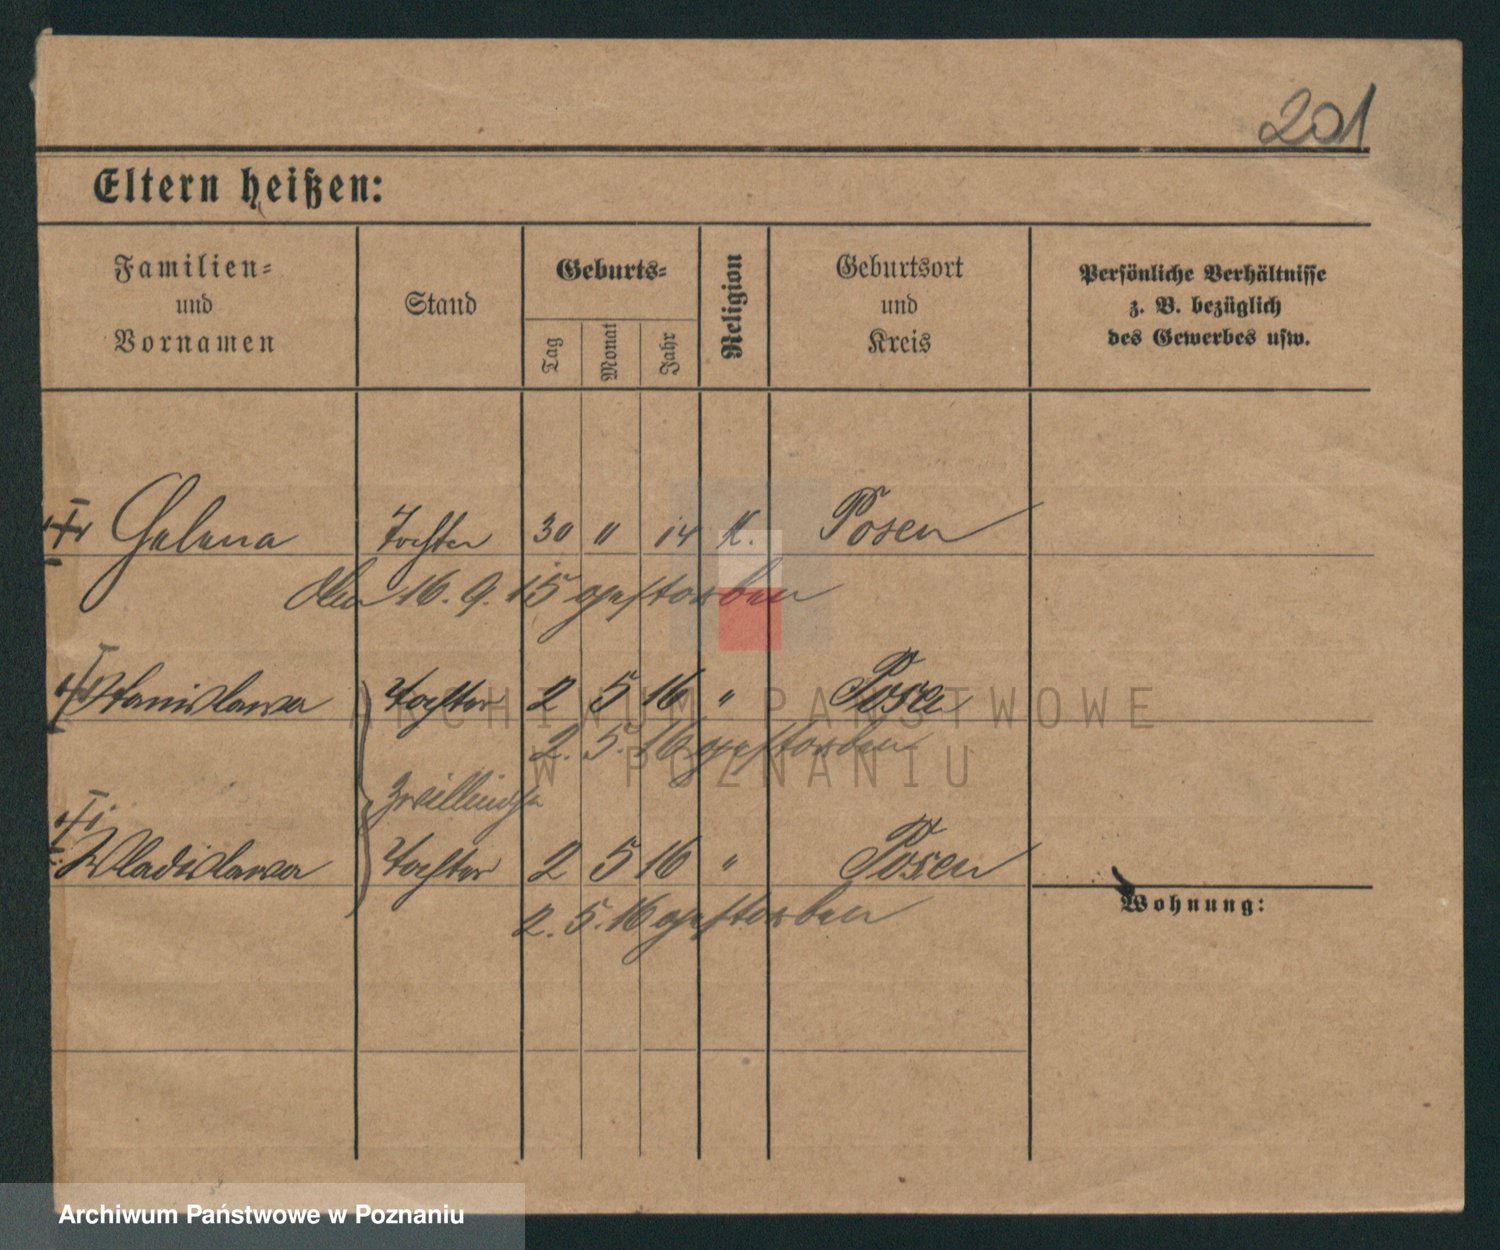 201
Eltern heißen:
Familien-
und
Vornamen
Stand
Geburts-
Tag
Monat
Jahr
Religion
Geburtsort
und
Kreis
Persönliche Verhältnisse
z. B. bezüglich
des Gewerbes usw.
Helena Tochter 30 " 14 K. Posen
den 16. 9. 15 gestorben
Stanislawa Tochter 2 5 16 " Posen
2. 5. 16 gestorben
Zwillinge
Wladislawa Tochter 2 5 16 " Posen
2. 5. 16 gestorben
Wohnung:
ARCHIWUM PAŃSTWOWE
W POZNANIU
Archiwum Państwowe w Poznaniu